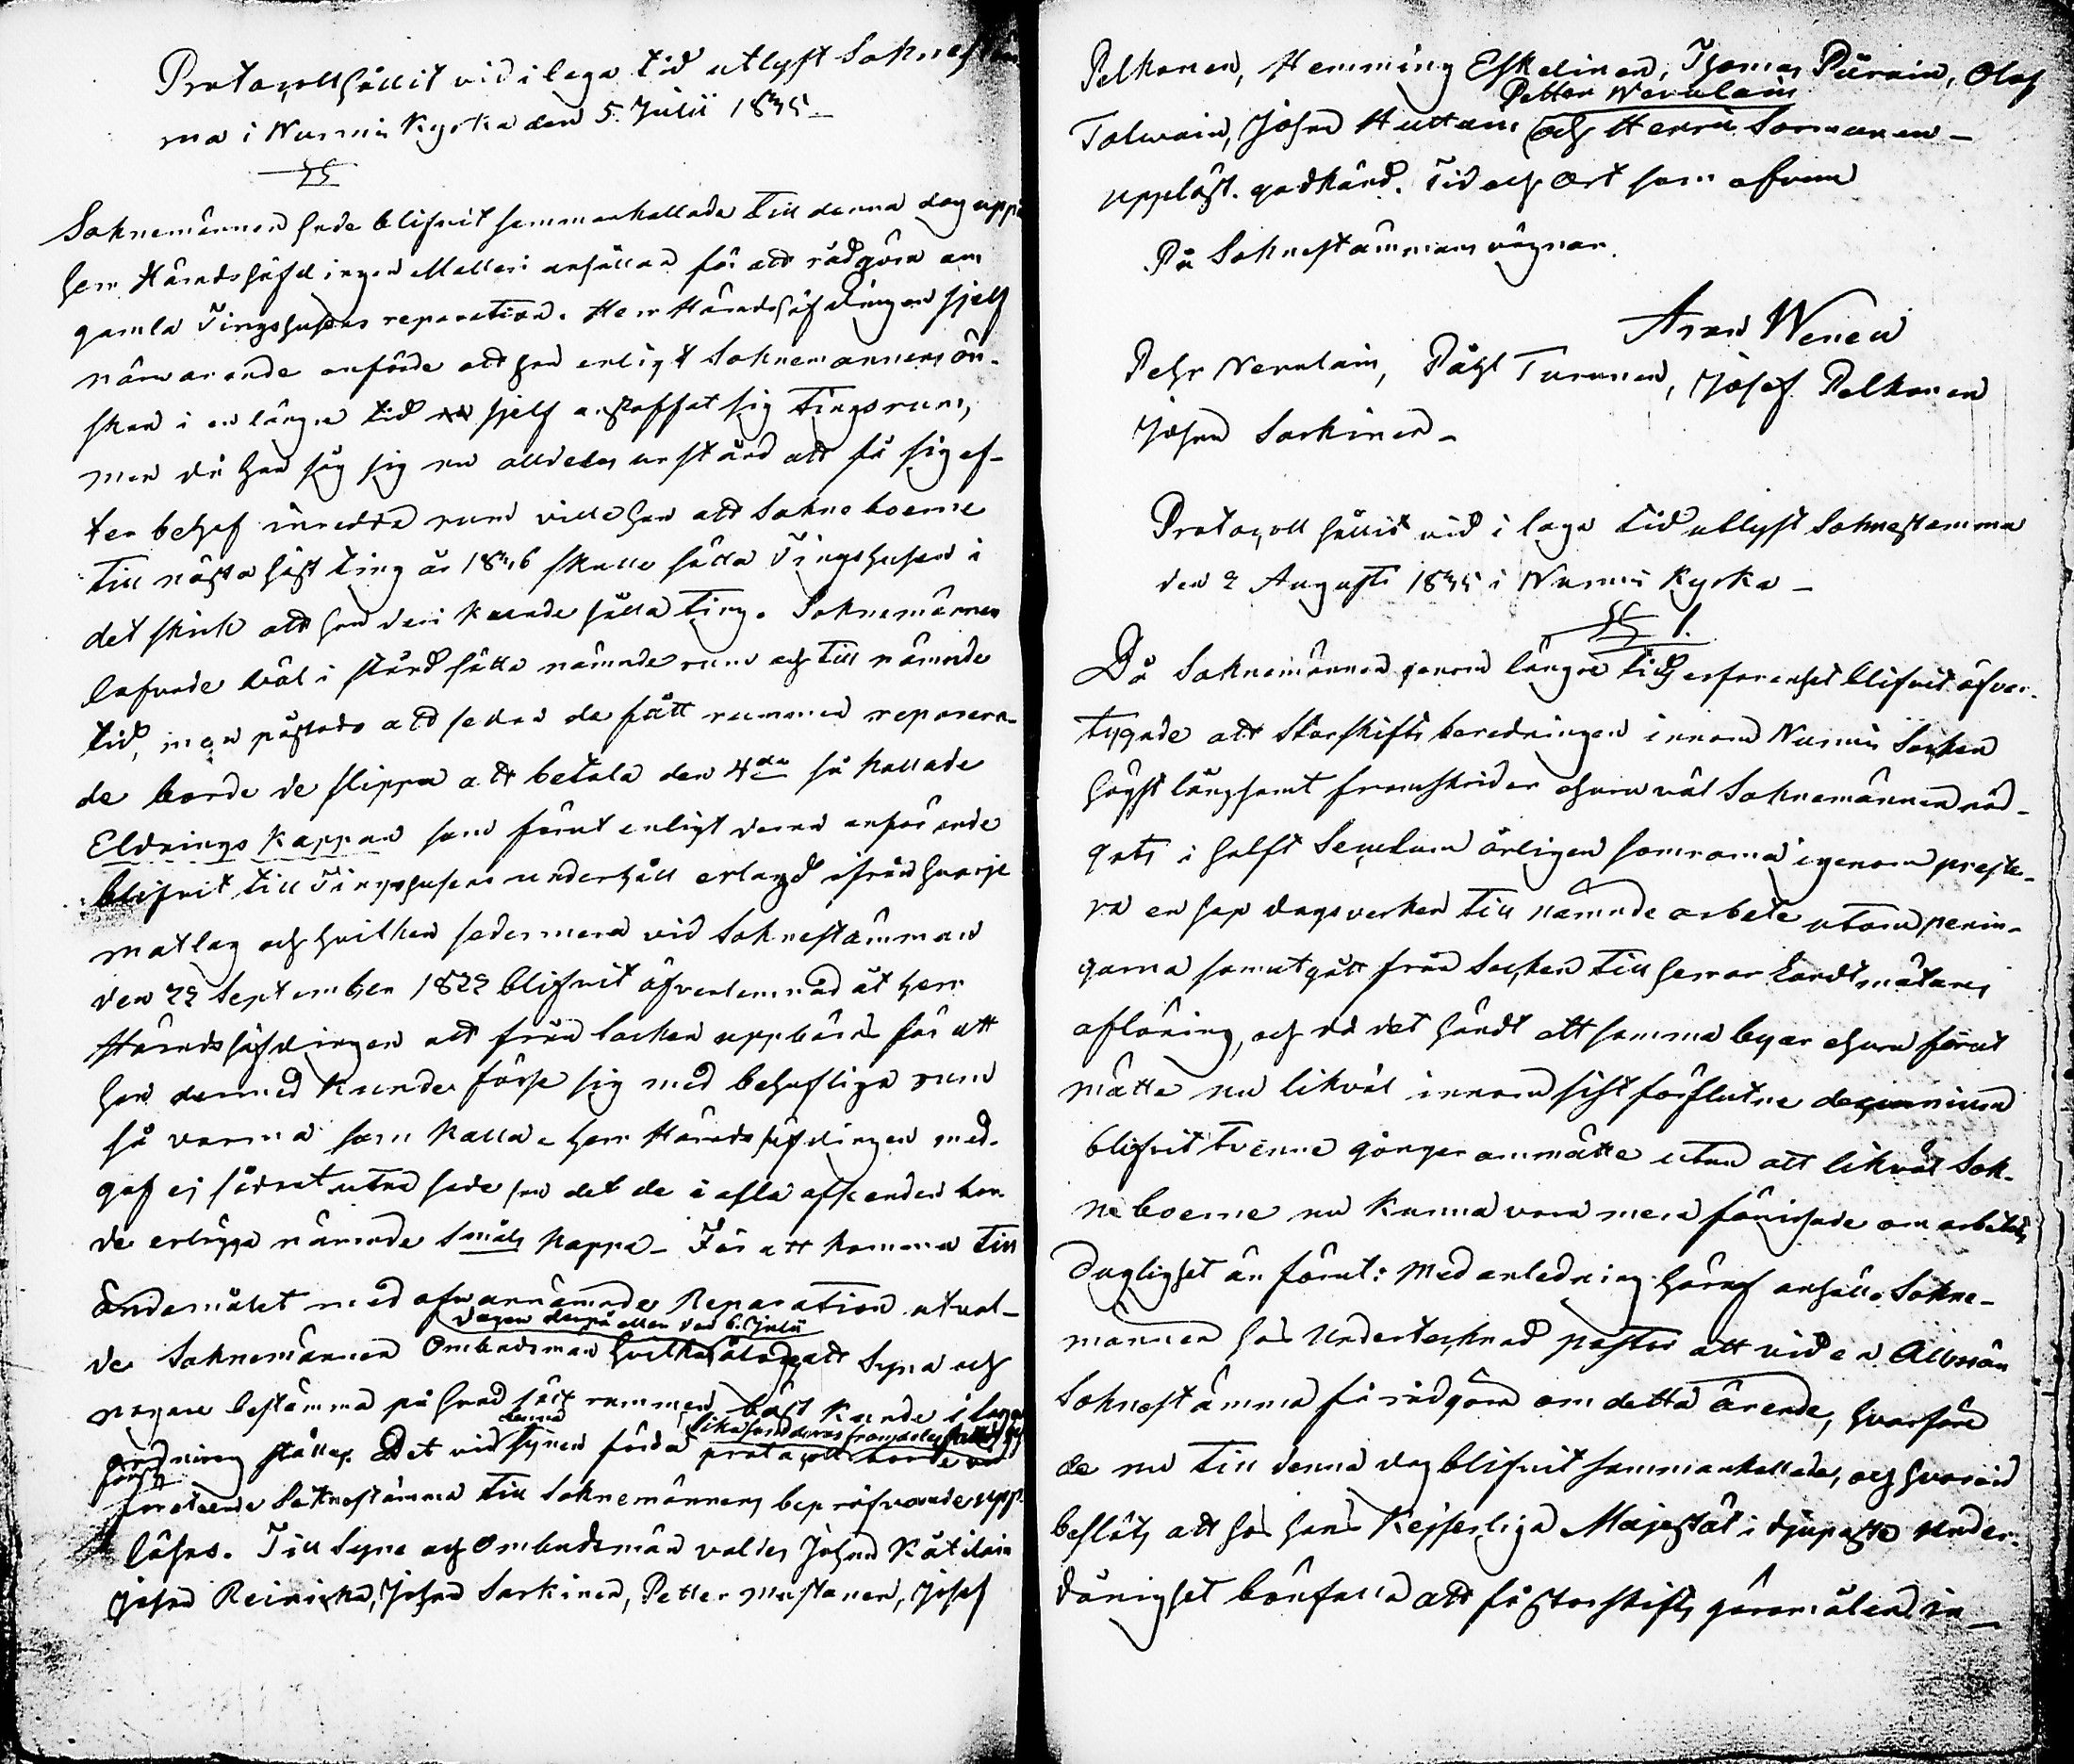 Protocoll hållit vid i laga tid utlyst Sokneståm
ma i Nurmis Kyrka den 5 Julii 1835 –
§
Soknemännen hade blifvit sammankallade till denna dag uppå
herr Häradshöfdingen Molleri anhållan för att rådgöra om
gamla Tingshusens reparation. Herr Häradshöfdingen sjelf
närvarande anförde att han enligt Soknemannens ön-
skan i en längre tid sjelf anskaffat sig tingsrum,
men då han såg sig nu alldeles urstånd att få sig ef-
ter behof inredda rum ville han att Sokneboerne
till nästa höst ting år 1836 skulle sätta Tingshusen i
det skick att han deri kunde hålla ting. Soknemännen
lofvade väl i stånd sätta nämnde rum och till nämnde
tid, men påstodo att sedan de fått rummen reparera-
de borde de slippa att betala den 4de så kallade
Eldnings Kappan som förut enligt deras anförande
blifvit till Tingshusens underhåll erlagd ifrån hvarje
matlag och hvilken sedermera vid Soknestämman
den 22 September 1822 blifvit öfverlemnad åt herr
Häradshöfdingen att från Socken uppbäras för att
han dermed kunde förse sig med behöfliga rum
så varma som kalla. herr Häradshöfdingen med-
gaf ej sådant utan sade han det de i alla afseenden bor-
de erlägga nämnde smäls kappa – För att komma till
ändamålet med ofvannämnde Reparation utval-
dagen derpå eller den 6 Julii
de Soknemännen Ombudsman hvilka ålades att Syna och
nogare bestämma på hvad sätt rummen bäst kunde i laga
denna lika som deras framdeles
ordning ställas. Det vid Synen förda protocoll borde
först
företeende Soknestämma till Soknemännens bepröfvande upp-
läsas. Till Syne och Ombudsmän valdes Johan Kätilain
Johan Reinicka, Johan Sarkinen, Petter Mustonen, Josef
Pelkonen, Hemming Eskelinen, Thomas Piirain, Olof
Petter Nevalain
Tolwain, Johan Huttuin och Henric Sormunen –
uppläst. godkänd. Tid och Ort som ofvan
På Soknestämmans vägnar.
Aron Wenell
Pehr Nevalain, Påhl Turunen, Josef Pelkonen
Johan Sarkinen –
Protocoll hållit vid i laga tid utlyst Soknestämma
den 2 Augusti 1835 i Nurmis Kyrka –
§ 1.
Då Soknemännen genom längre tids erfarenhet blifvit öfver-
tygade att Storskiftsberedningen innom Nurmis Socken
högst långsamt framskrider ehuru väl Soknemännen nöd-
gats i halft Seculum årligen sommarn igenom preste-
ra en hop dagsverken till nämnde arbete utom penin-
garna som utgått från Socken till herrar Landtmätares
aflöning, och då det händt att somma byar ehuru förut
mätte nu likväl innom sist förflutne decennium
blifvit tvenne gånger ommätte utan att likväl Sok-
neboerne nu kunna vara mera förvissade om arbetets
duglighet än förut: Med anledning häraf anhöllo Sokne-
männen hos Undertecknad pastor att vid en Allmän
Soknestämma få rådgöra om detta ärende, hvarföre
de nu till denna dag blifvit sammankallade, och hvarvid
beslöts att hos Hans Kejserliga Majestät i djupaste Under-
dånighet bönfalla att få Storskifts göromålen in-